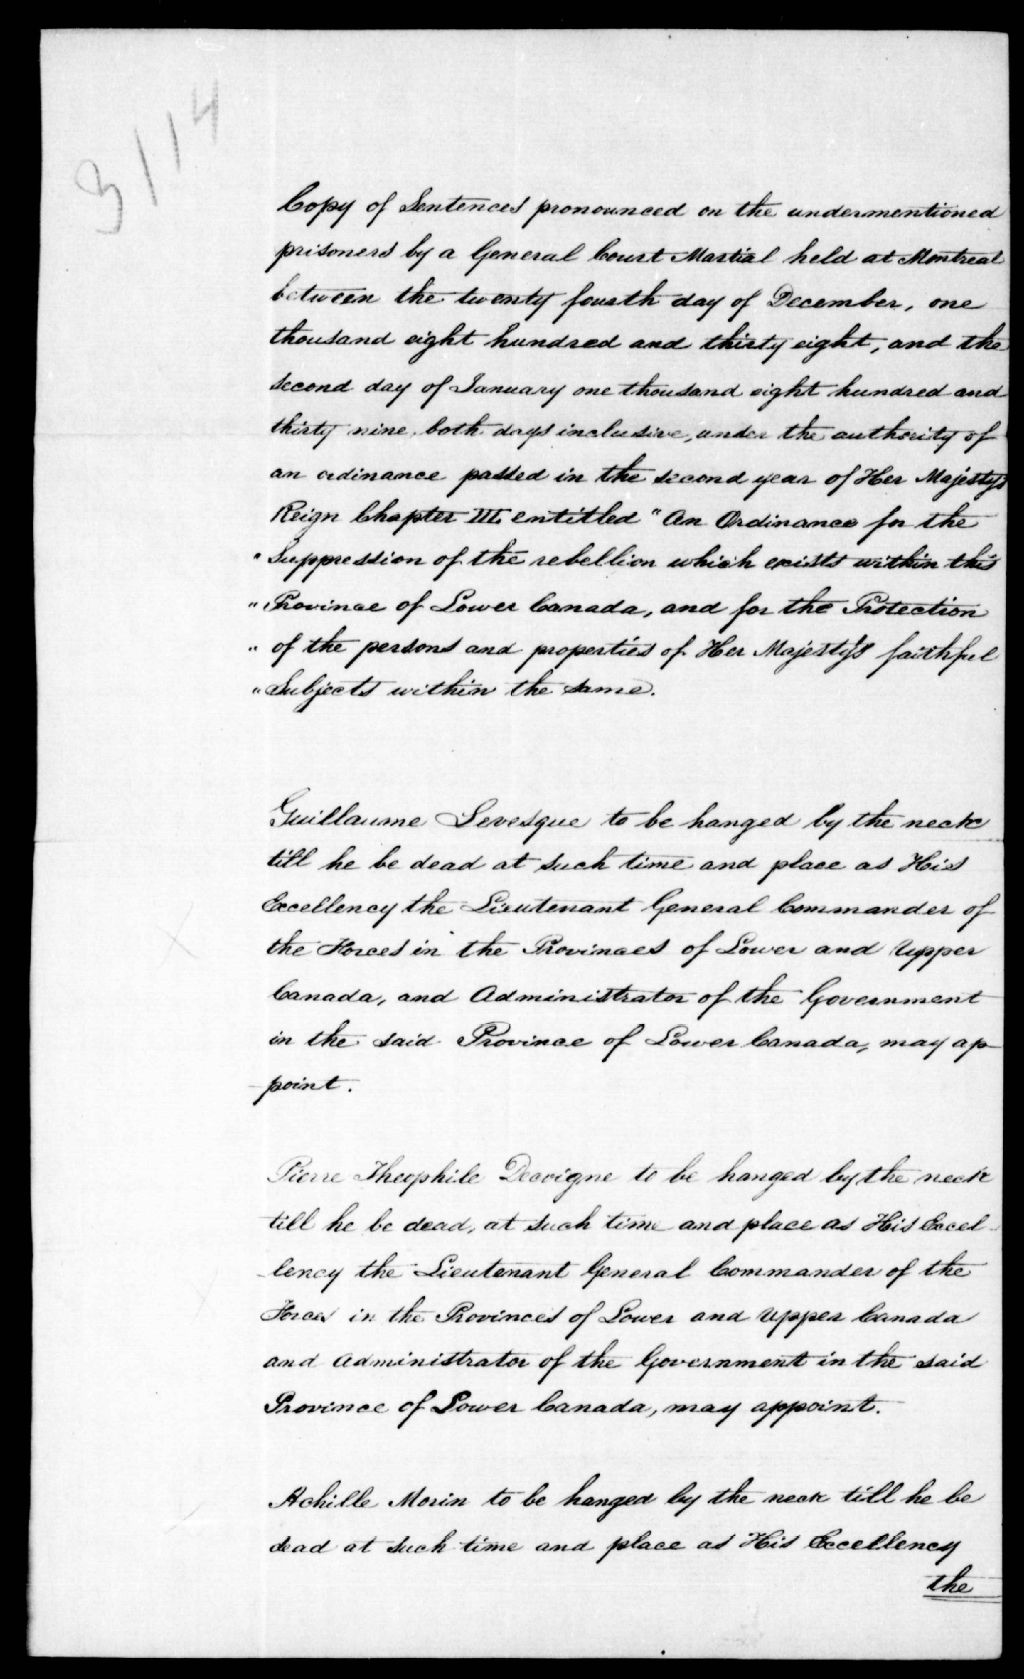 3114
Copy of Sentences pronounced on the undermentioned
prisoners by a General Court Martial held at Montreal
between the twenty fourth day of December, one
thousand eight hundred and thirty eight, and the
second day of January one thousand eight hundred and
thirty nine, both days inclusive, under the authority of
an ordinance passed in the second year of Her Majesty's
Reign Chapter III, entitled "An Ordinance for the
" Suppression of the rebellion which exists within this
" Province of Lower Canada, and for the Protection
" of the persons and properties of Her Majesty's faithful
" Subjects within the same.
Guillaume Levesque to be hanged by the neck
till he be dead at such time and place as His
Excellency the Lieutenant General Commander of
the Forces in the Provinces of Lower and Upper
Canada, and Administrator of the Government
in the said Province of Lower Canada, may ap-
-point.
Pierre Theophile Decoigne to be hanged by the neck
till he be dead, at such time and place as His Excel-
-lency the Lieutenant General Commander of the
Forces in the Provinces of Lower and Upper Canada
and Administrator of the Government in the said
Province of Lower Canada, may appoint.
Achille Morin to be hanged by the neck till he be
dead at such time and place as His Excellency
the